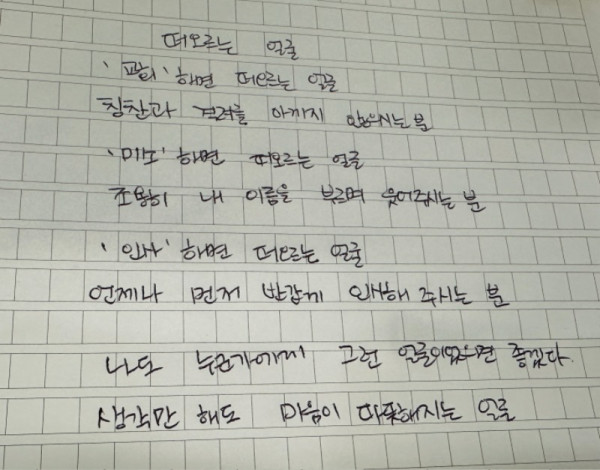 떠오르는 얼굴
'파티' 하면 떠오르는 얼굴
칭찬과 격려를 아끼지 않으시는 분
'미소' 하면 떠오르는 얼굴
조용히 내 이름을 부르며 웃어주시는 분
'인사' 하면 떠오르는 얼굴
언제나 먼저 반갑게 인사해 주시는 분
나도 누군가에게 그런 얼굴이었으면 좋겠다.
생각만 해도 마음이 따뜻해지는 얼굴